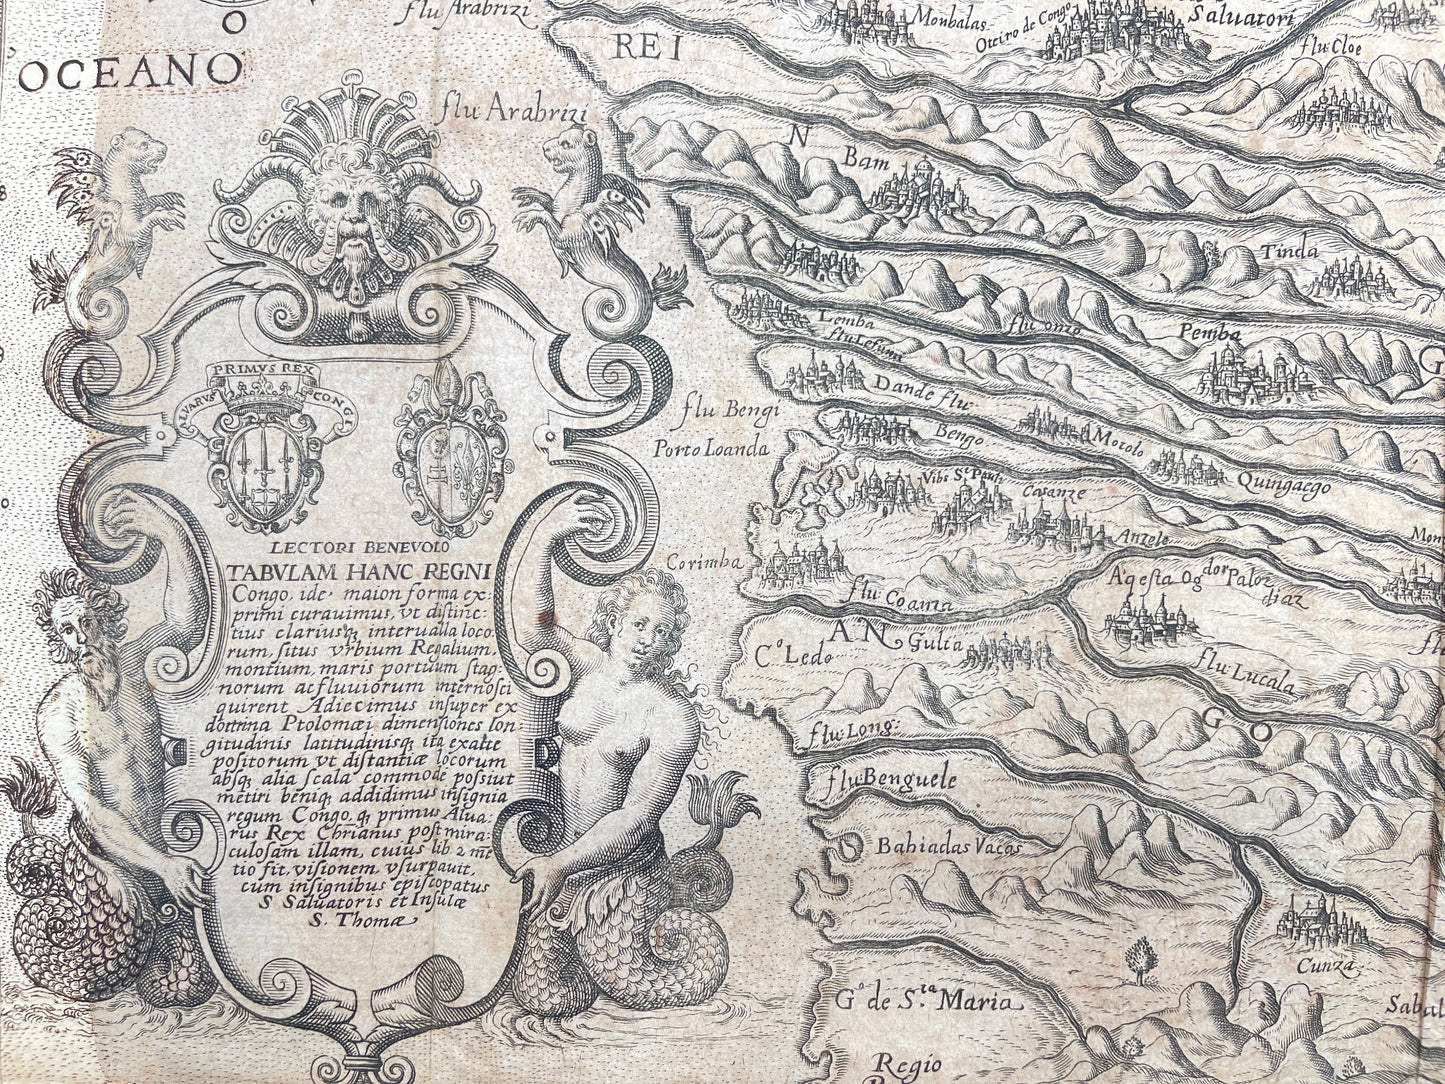 O
OCEANO
flu Arabrizi
Monbalas
Oteiro de Congo
Saluatori
flu: Cloe
REI
flu Arabrizi
N
Bam
Tinda
Lemba
flu Lefum
flu onzo
Pemba
G
PRIMVS REX
CONGI
Dande flu:
flu Bengi
Porto Loanda
Bengo
Motolo
Quingaego
Vibs S.t Pauli
Casanze
Anzele
Mon
Corimba
flu Coanza
Aqesta Og dor Paloz
diaz
AN
Gulta
C.o Ledo
flu Lucala
GO
flu: Long:
flu Benguele
Bahiadas Vacas
Cunza
G.o de S.ta Maria
Sabal
Regio
LECTORI BENEVOLO
TABVLAM HANC REGNI
Congo, ide maion forma ex:
primi curauimus, vt distinc:
tius clariusq; interualla loco:
rum, situs vrbium Regalium,
montium, maris portuum stag:
norum ac fluuiorum internosci
quirent Adiecimus insuper ex
doctrina Ptolomæi dimensiones lon:
gitudinis latitudinisq; ita exalte
positorum vt distantiæ locorum
absq; alia scala commode possiut
metiri beniq; addidimus insignia
regum Congo, q; primus Alua:
rus Rex Chrianus post mira:
culosam illam, cuius lib 2 mē
tio fit, visionem vsurpauit,
cum insignibus episcopatus
S Saluatoris et Insulæ
S. Thomæ